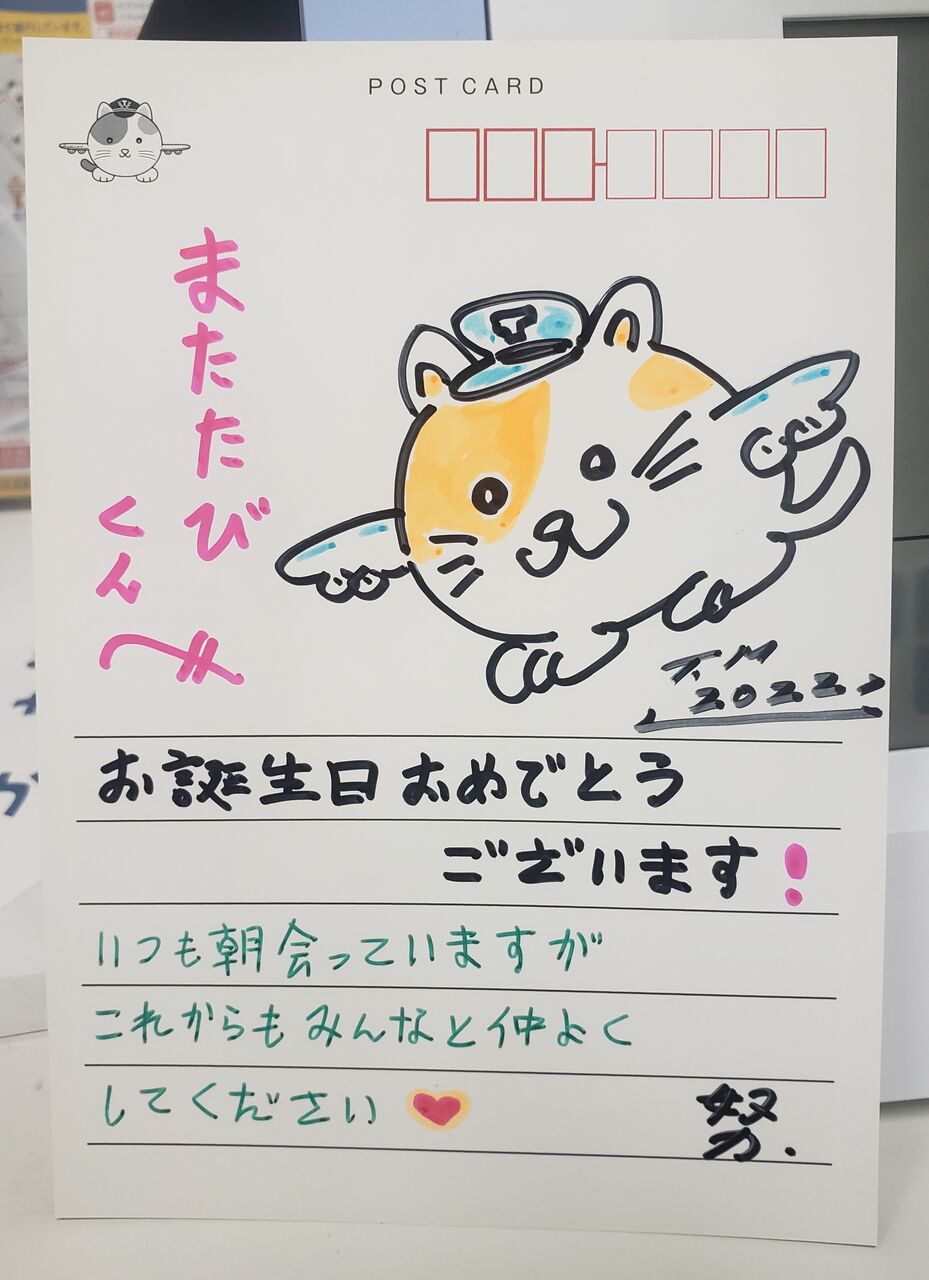 POST CARD
またたび
くんへ
T.M
2022.
お誕生日おめでとう
ございます!
いつも朝会っていますが
これからもみんなと仲よく
してください
努.